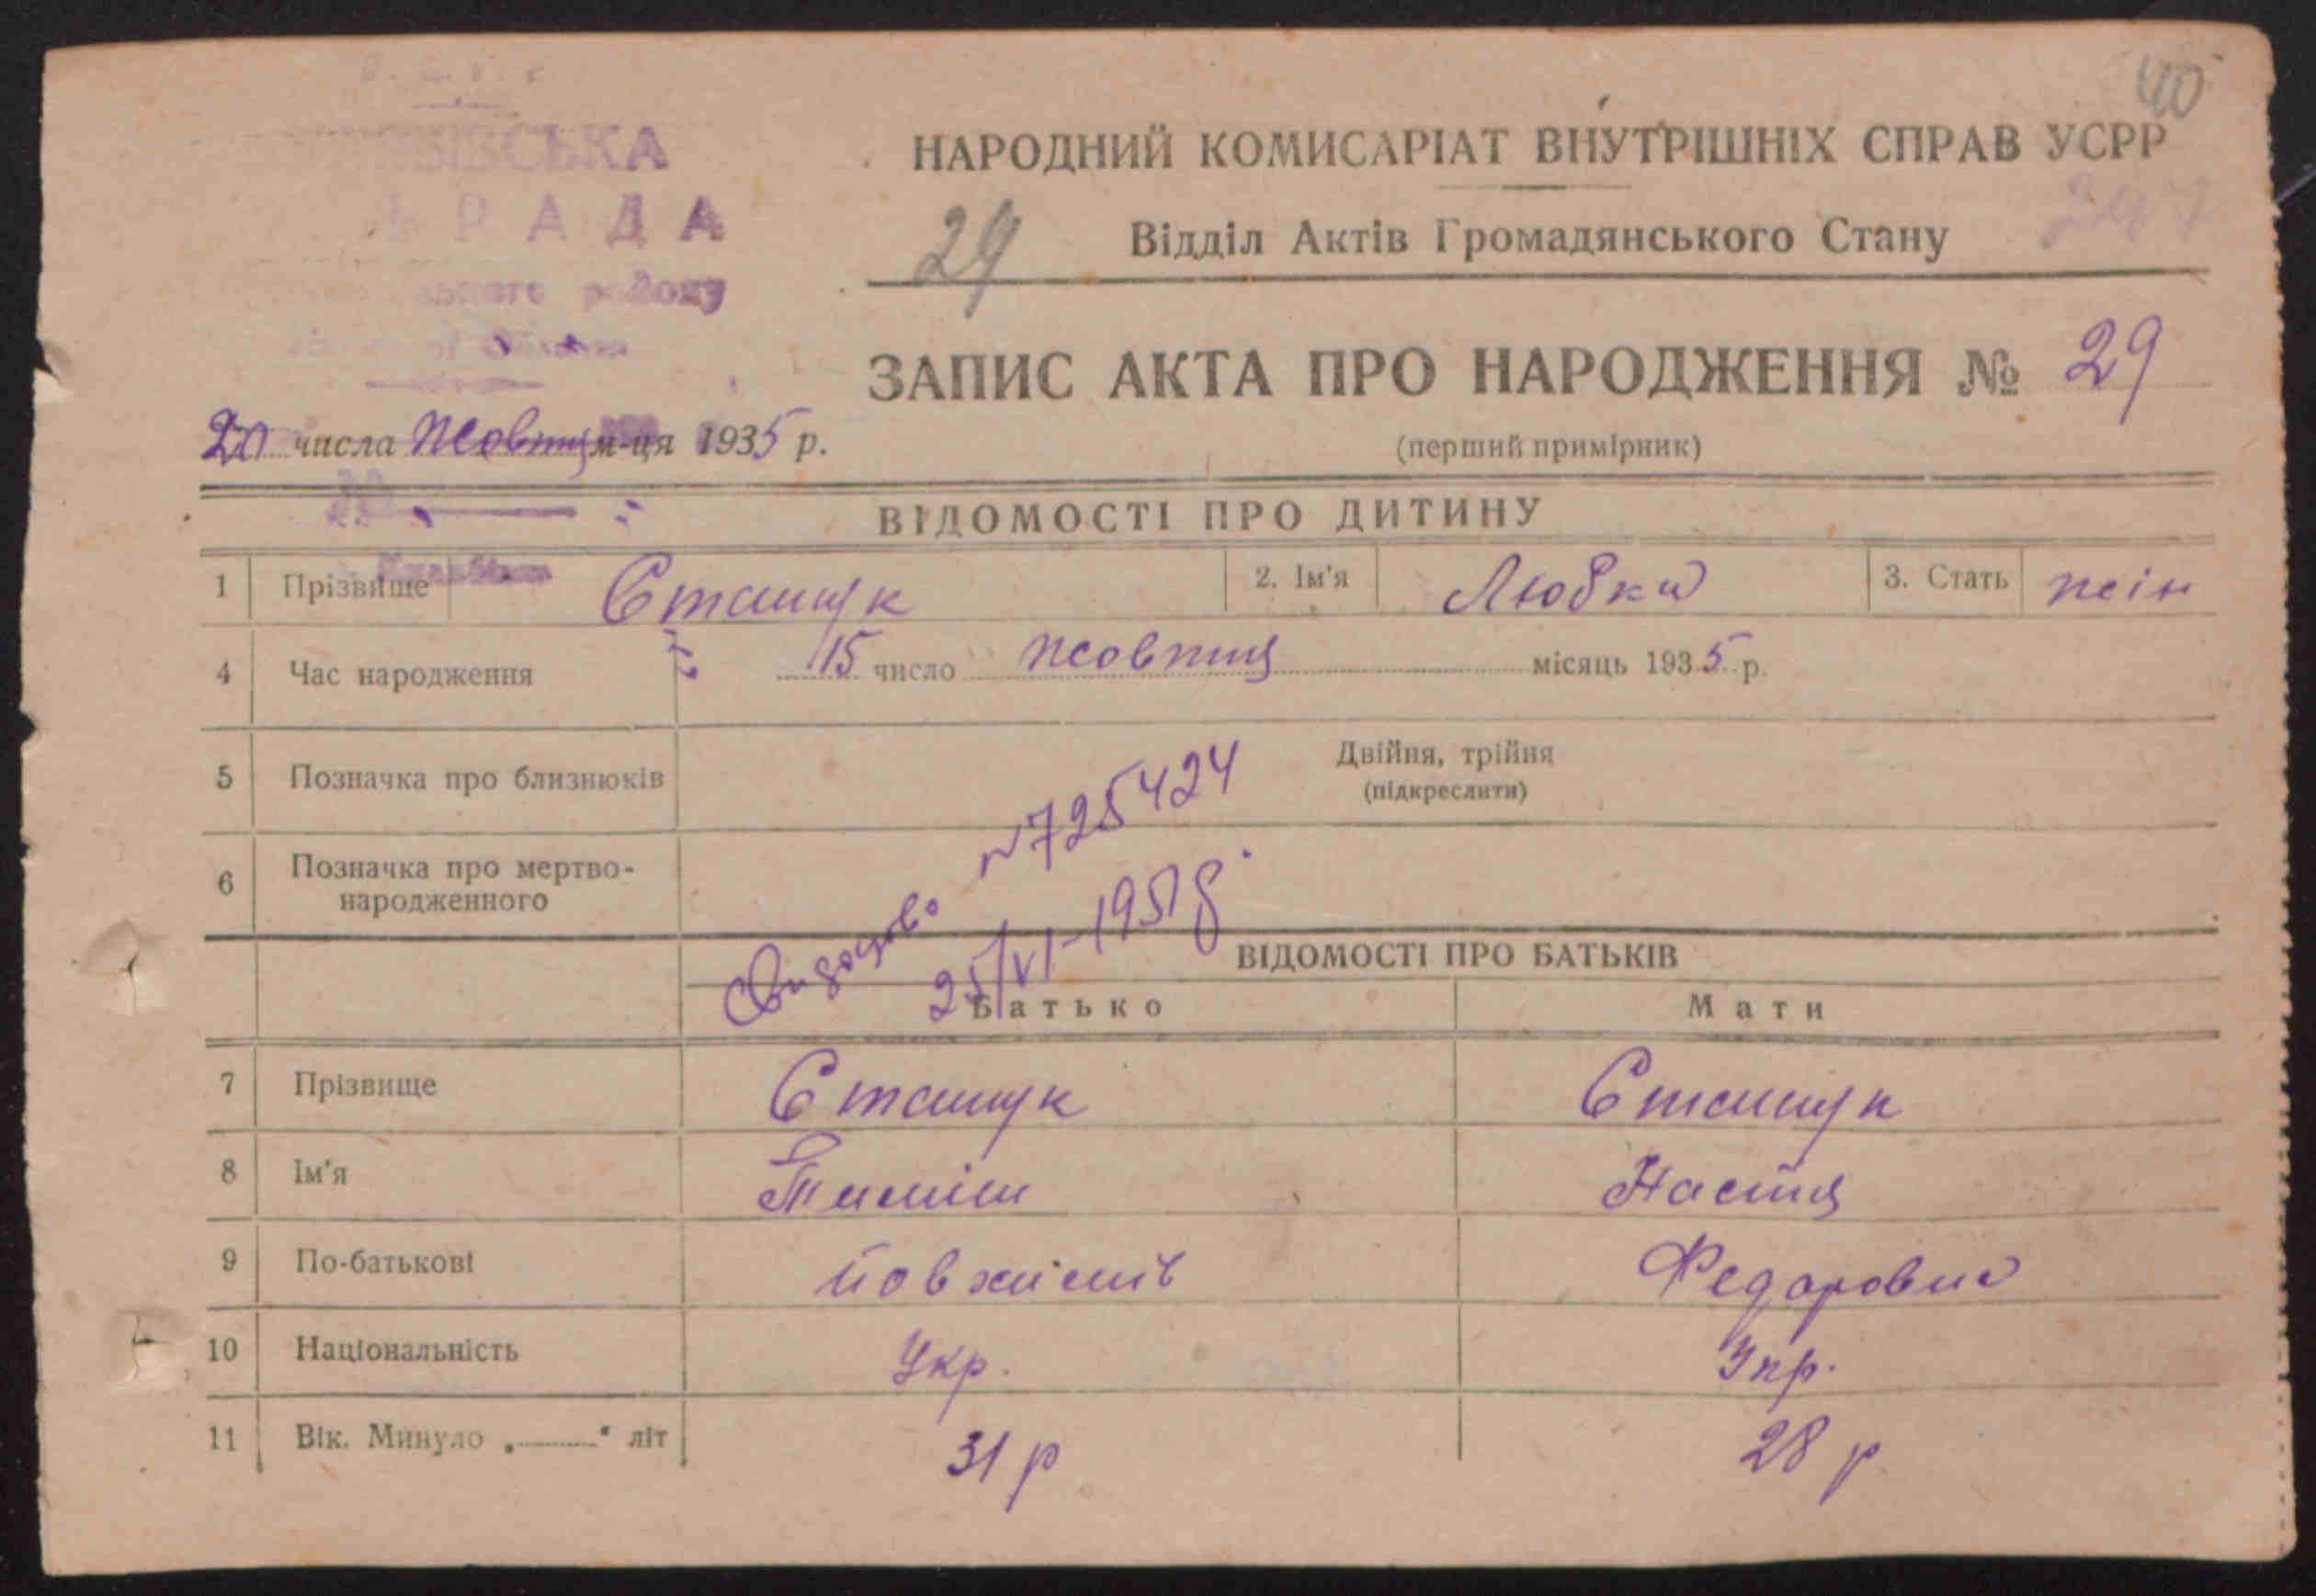 40
НАРОДНИЙ КОМИСАРІАТ ВНУТРІШНІХ СПРАВ УСРР
РАДА
29 Відділ Актів Громадянського Стану
району
ЗАПИС АКТА ПРО НАРОДЖЕННЯ № 29
20 числа Жовтня м-ця 1935 р.
(перший примірник)
ВІДОМОСТІ ПРО ДИТИНУ
1 Прізвище Сташук 2. Ім'я Любка 3. Стать жін
4 Час народження 15 число жовтня місяць 1935 р.
5 Позначка про близнюків Двійня, трійня
(підкреслити)
6 Позначка про мертво-
народженного
Свидоцтво №725424
25/VI-1958
ВІДОМОСТІ ПРО БАТЬКІВ
Батько Мати
7 Прізвище Сташук Сташук
8 Ім'я Тиміш Настя
9 По-батькові Федоровна
10 Національність Укр. Укр.
11 Вік. Минуло „ “ літ 31 р 28 р